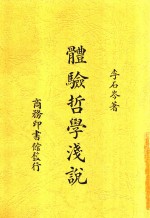 李石岑著
體驗哲學淺說
商務印書館發行